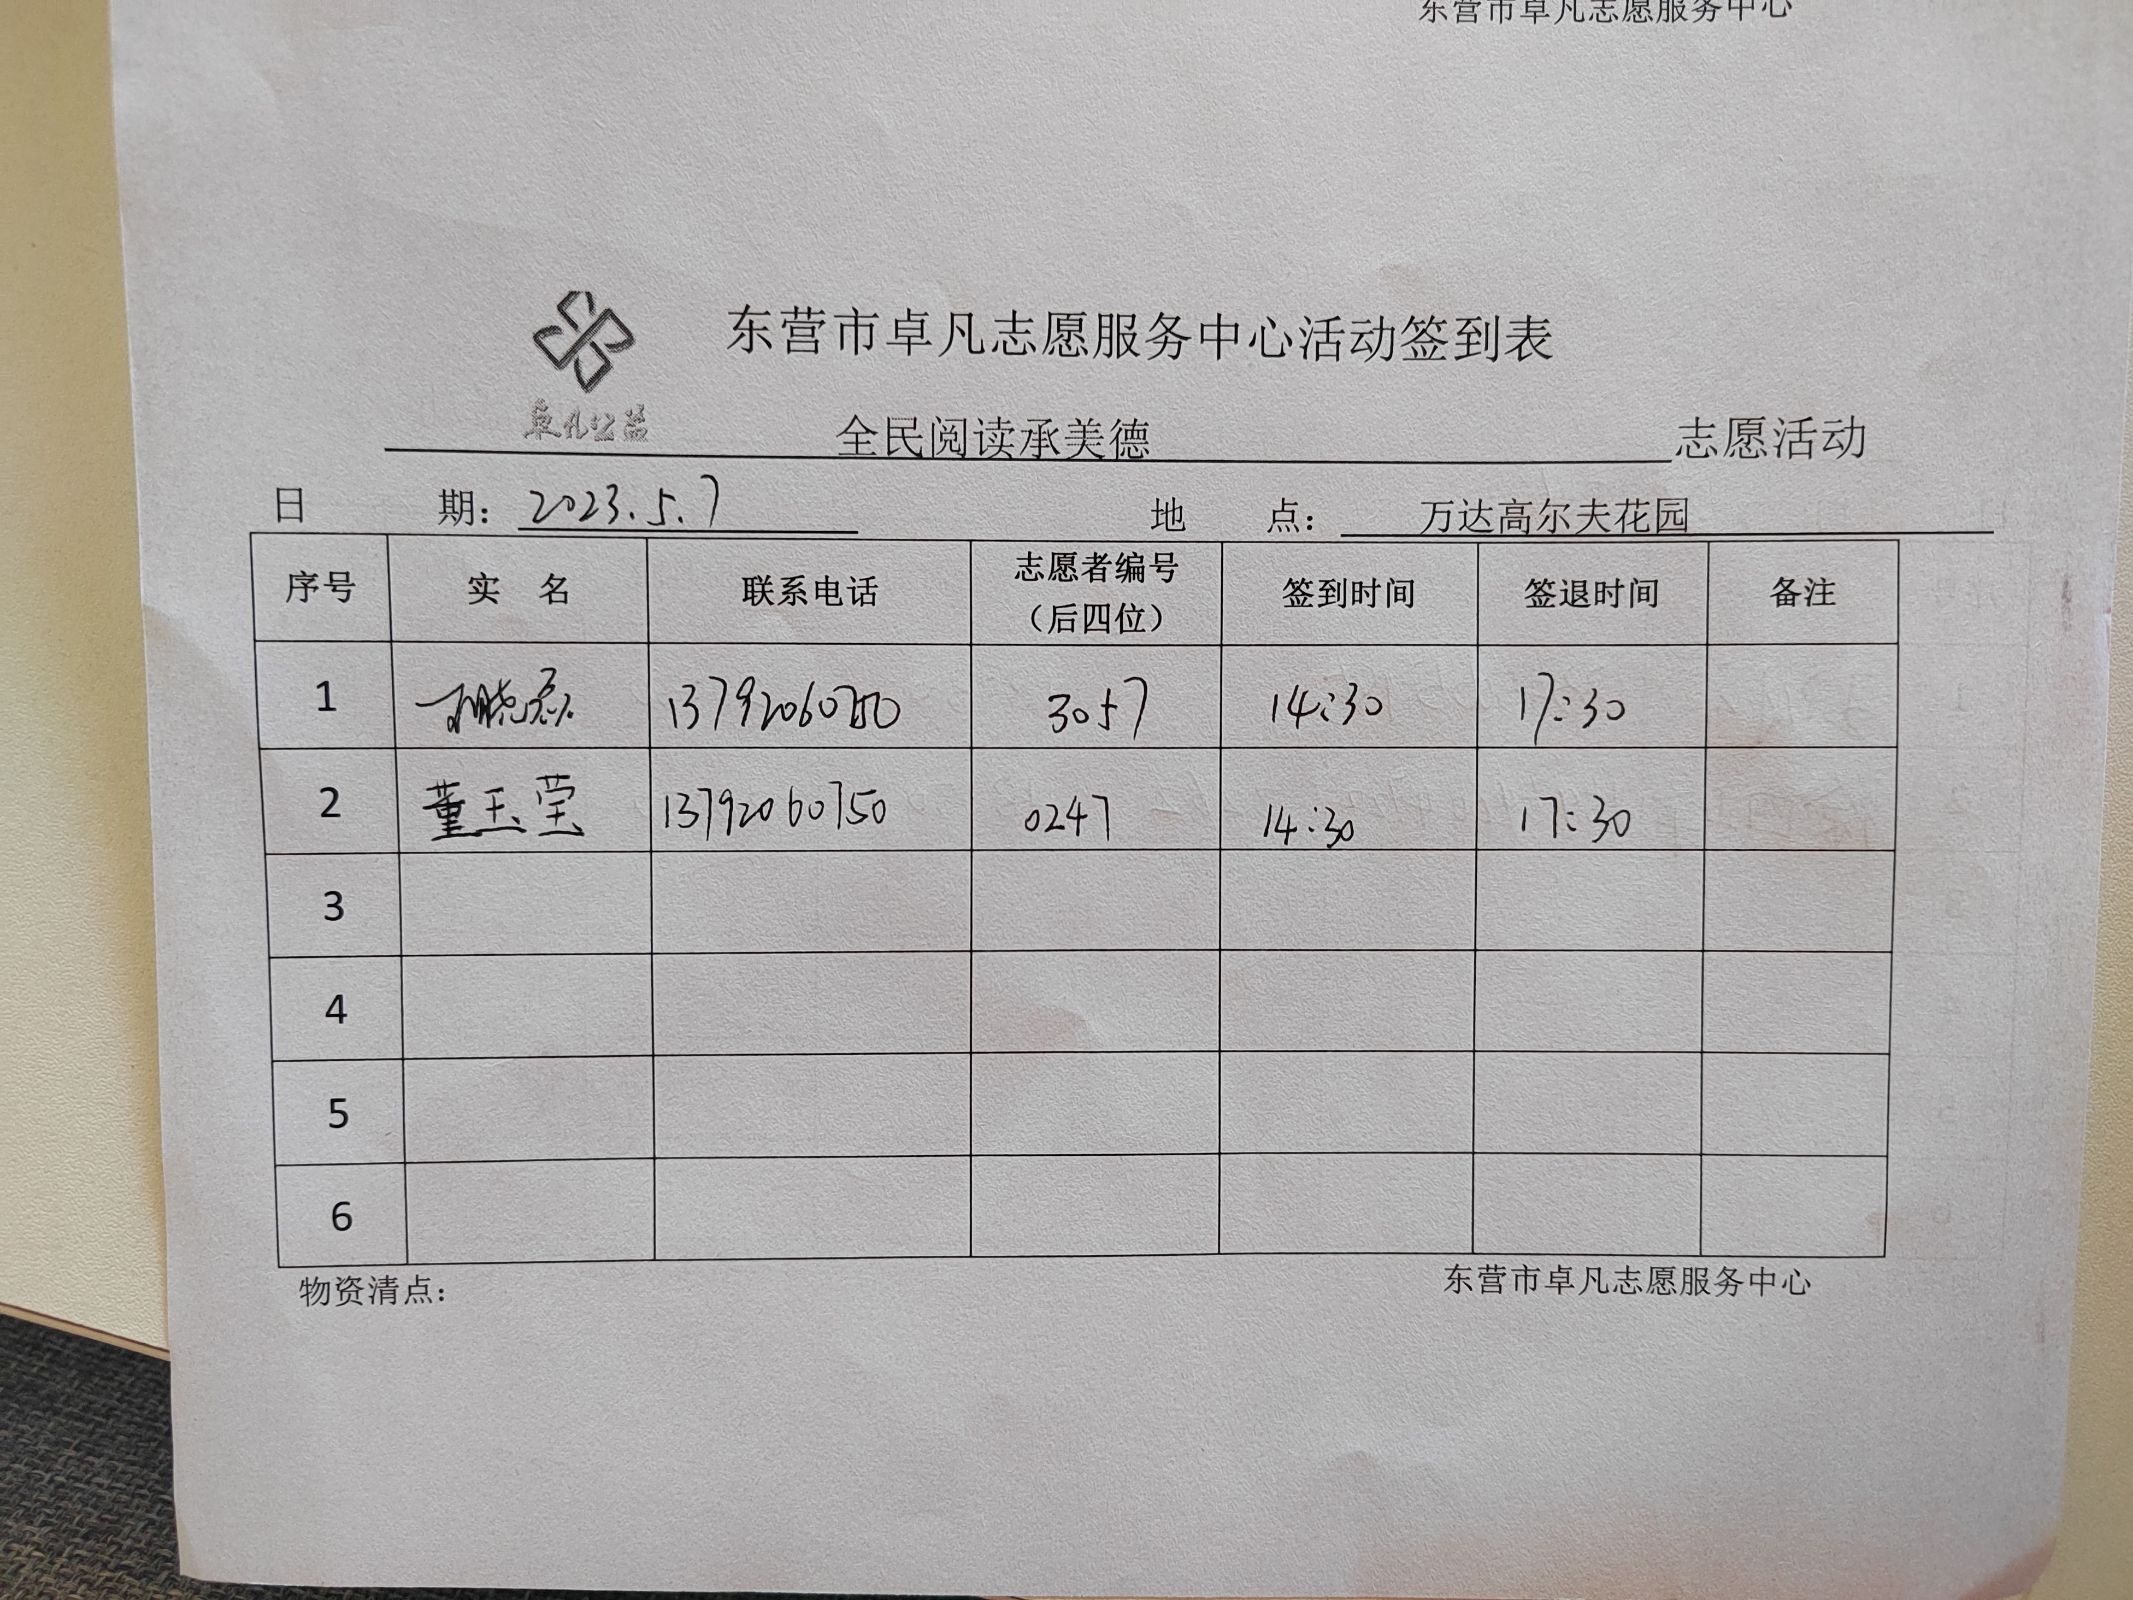 东营市卓凡志愿服务中心
东营市卓凡志愿服务中心活动签到表
卓凡公益
全民阅读承美德 志愿活动
日 期： 2023.5.7 地 点： 万达高尔夫花园
序号 实 名 联系电话 志愿者编号（后四位） 签到时间 签退时间 备注
1 晓磊 3057 14:30 17:30
2 董玉莹 13792060750 0247 14:30 17:30
3
4
5
6
物资清点： 东营市卓凡志愿服务中心